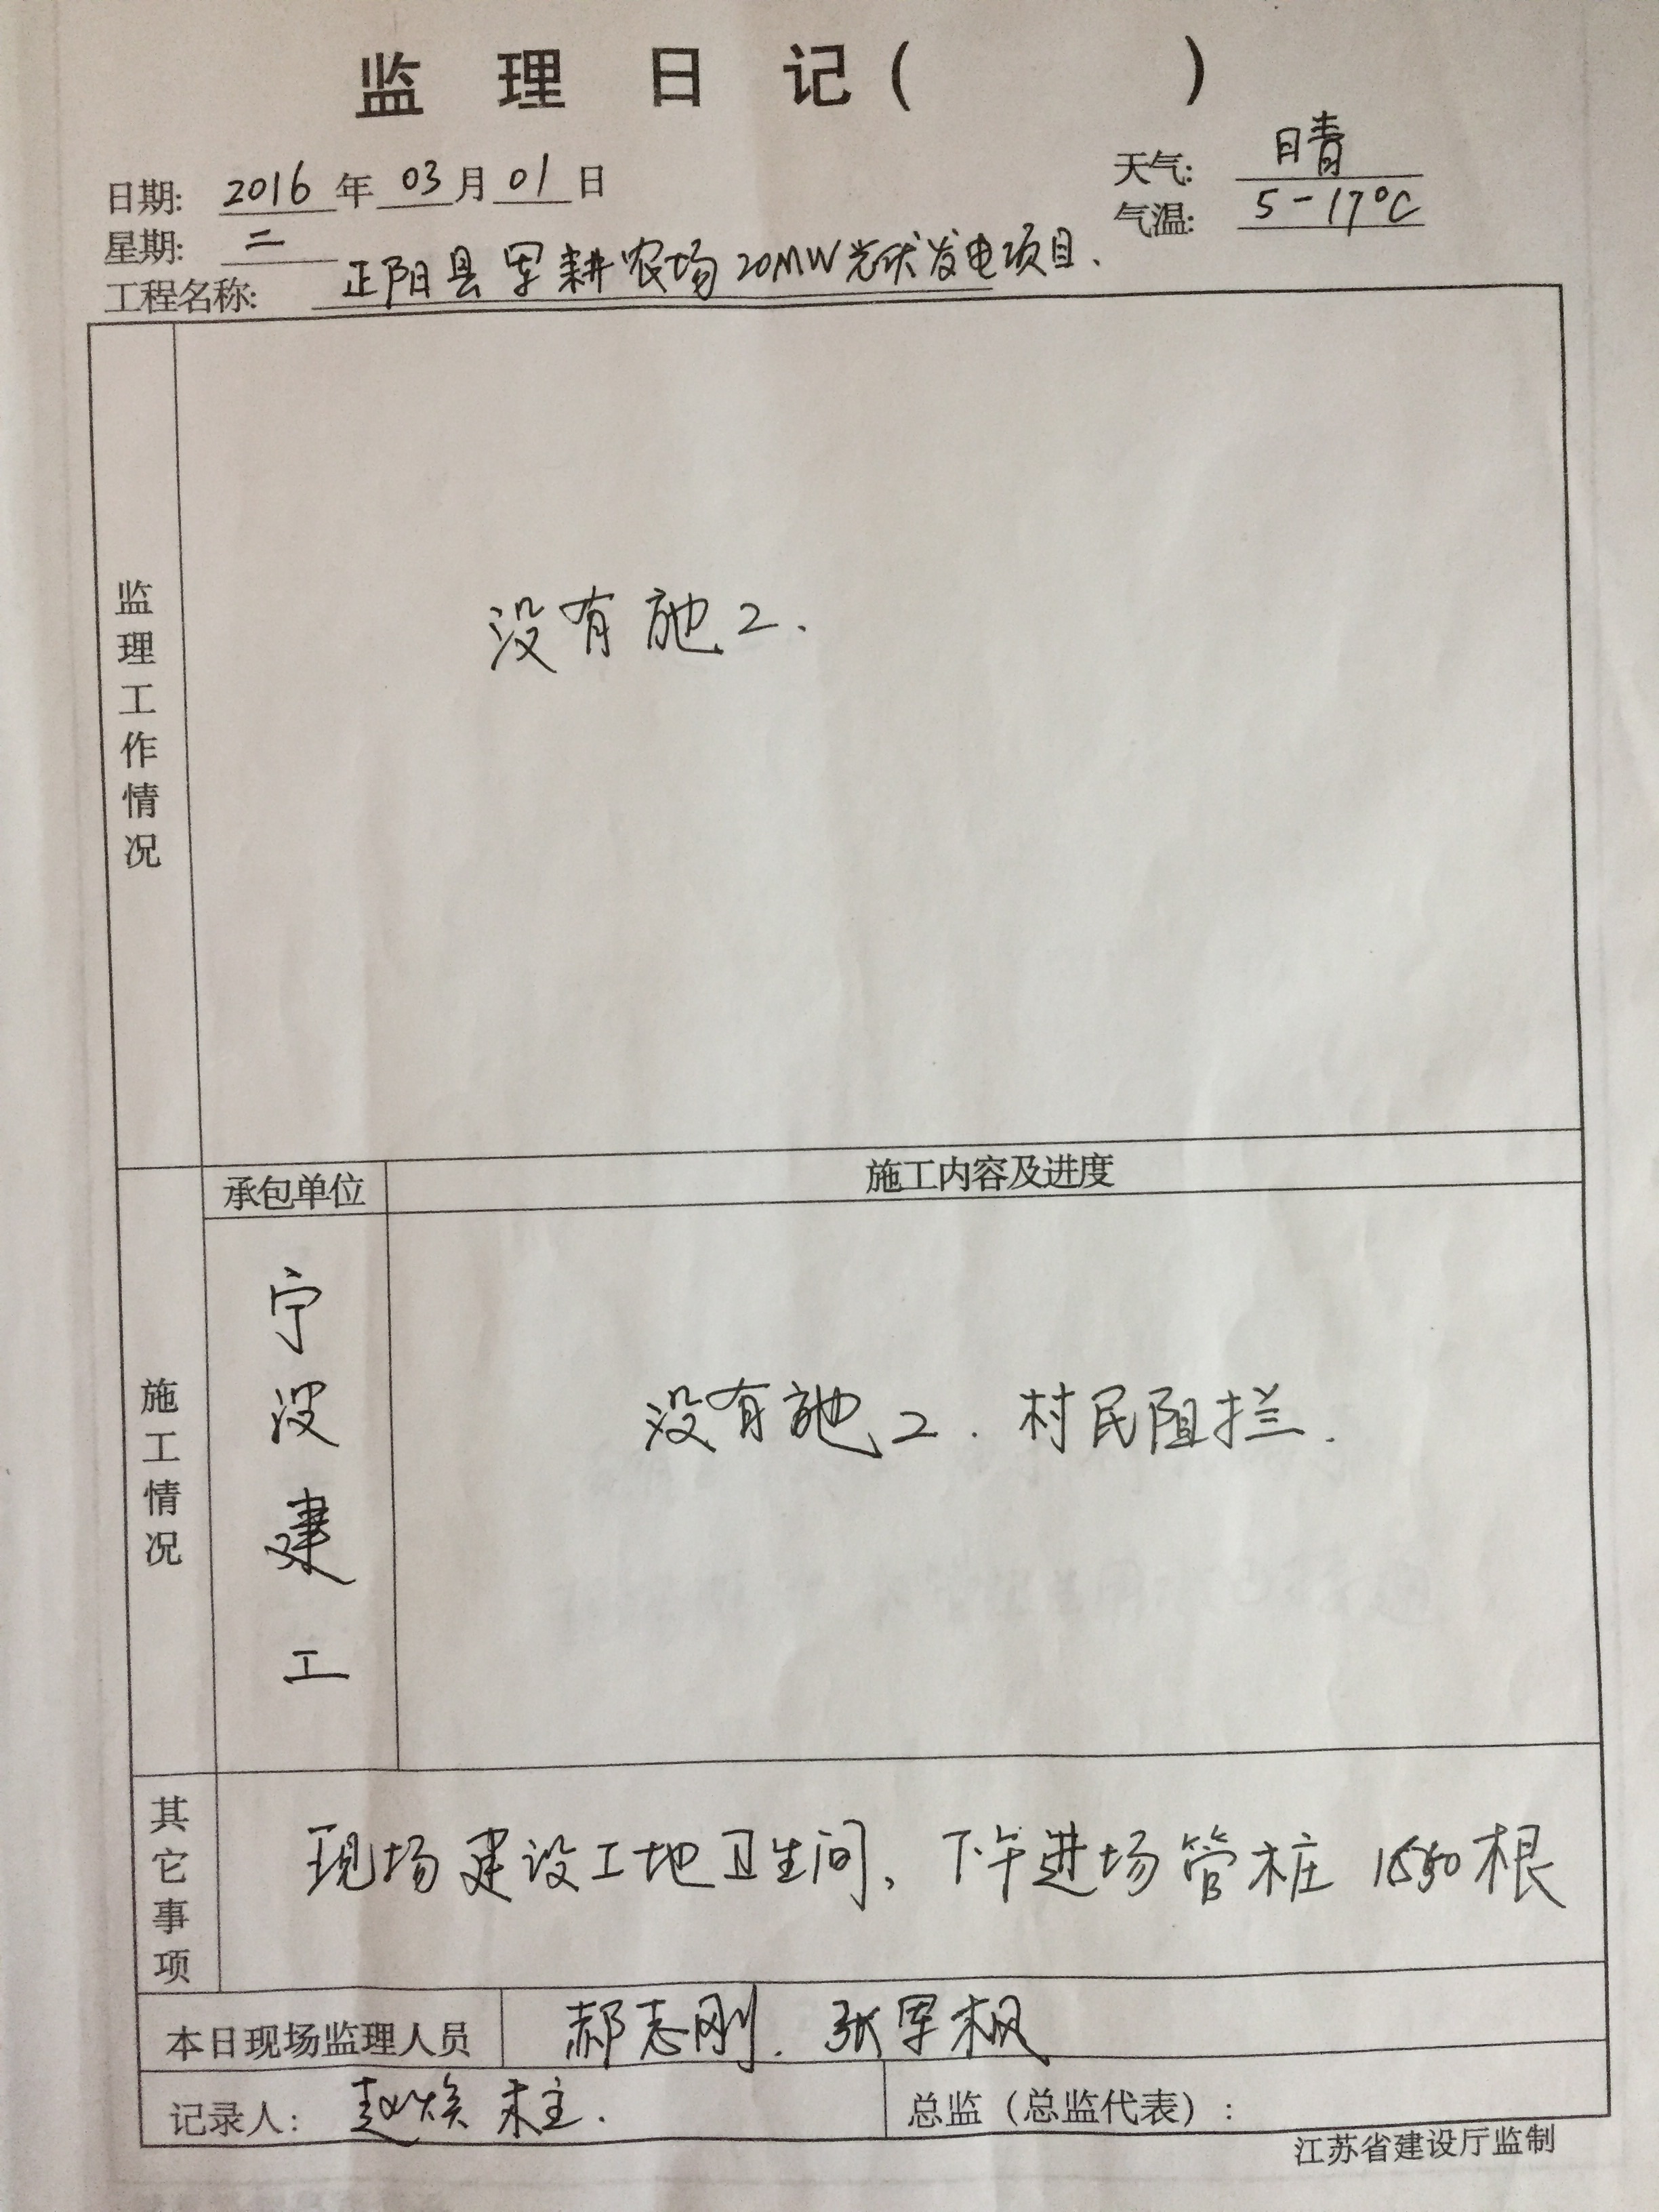 监理日记（ ）
日期: 2016年03月01日
天气: 晴
星期: 二
气温: 5-17℃
工程名称: 正阳县军耕农场20MW光伏发电项目.
监理工作情况
没有施工.
承包单位
施工内容及进度
施工情况
宁波建工
没有施工. 村民阻拦.
其它事项
现场建设工地卫生间、下午进场管桩 根
本日现场监理人员
郝志刚. 张军枫
记录人: 赵焕
总监（总监代表）:
江苏省建设厅监制